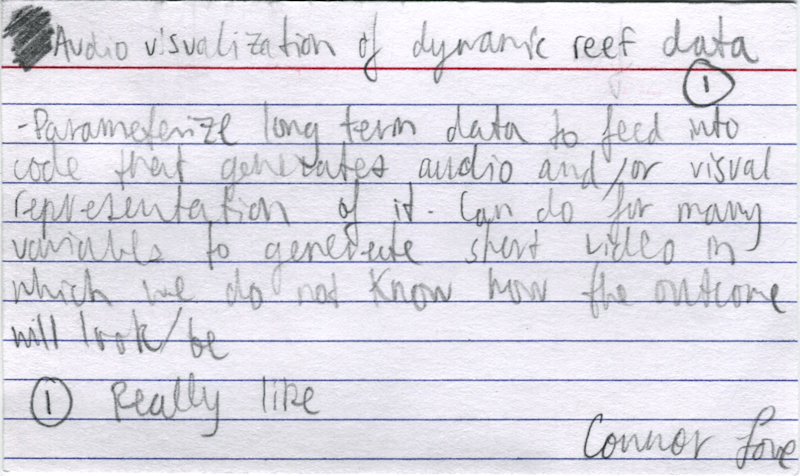 Audio visualization of dynamic reef data
①
-Parameterize long term data to feed into
code that generates audio and/or visual
representation of it. Can do for many
variables to generate short video in
which we do not know how the outcome
will look/be
① Really like
Connor Love